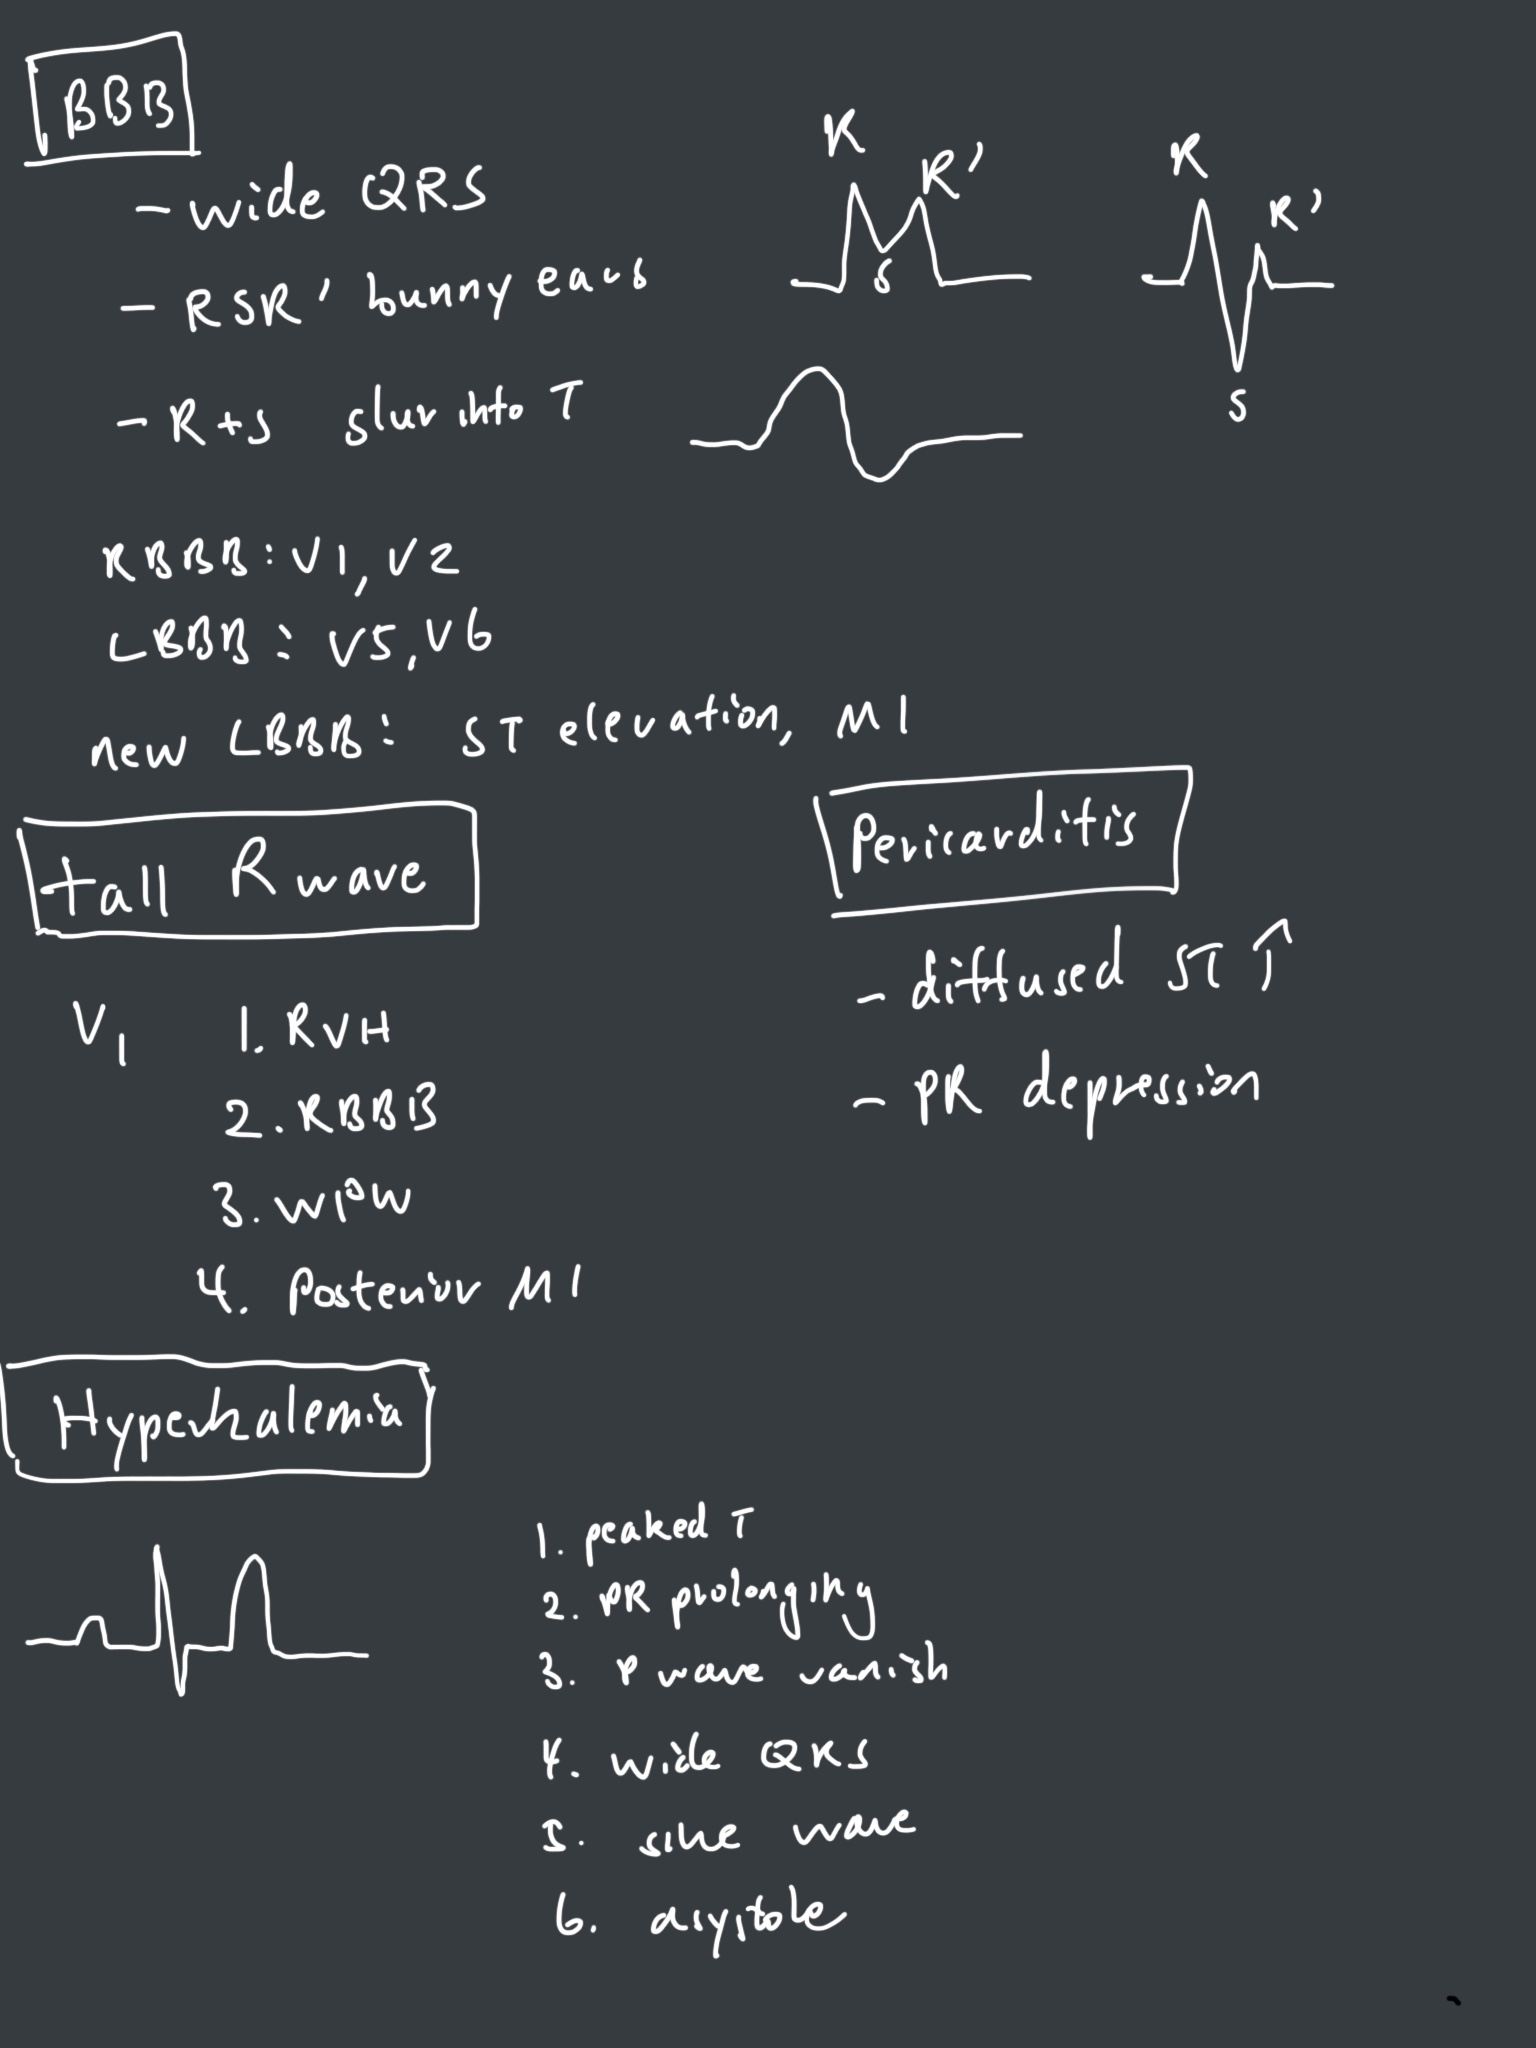 BBB
- wide QRS
- RSR' bunny ears
R
R'
S
R
R'
S
- R+S slur into T
RBBB: V1, V2
LBBB: V5, V6
new LBBB: ST elevation, MI
tall R wave
V1
1. RVH
2. RBBB
3. WPW
4. Posterior MI
Pericarditis
- diffused ST ↑
- PR depression
Hyperkalemia
1. peaked T
2. PR prolonging
3. P wave vanish
4. wide QRS
5. sine wave
6. asystole